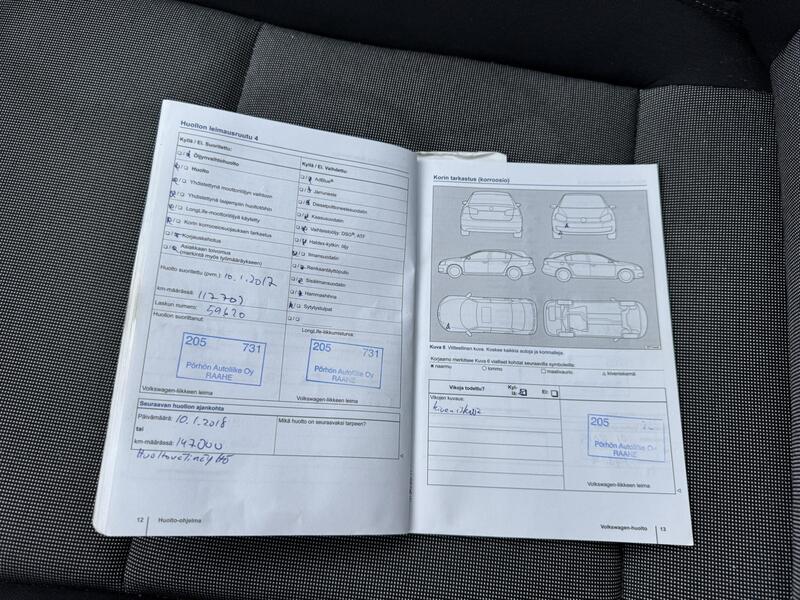 Huollon leimausruutu 4
Kyllä / Ei. Suoritettu:
Öljynvaihtohuolto
Huolto
Yhdistettynä moottoriöljyn vaihtoon
Yhdistettynä laajempiin huoltotöihin
LongLife-moottoriöljyä käytetty
Korin korroosiosuojauksen tarkastus
Korjauskehotus
Asiakkaan toivomus
(merkintä myös työmääräykseen)
Huolto suoritettu (pvm.) 10.1.2017
km-määrässä: 117702
Laskun numero: 59620
Huollon suorittanut:
205 731
Pörhön Autoliike Oy
RAAHE
Volkswagen-liikkeen leima
Kyllä / Ei. Vaihdettu:
AdBlue®
Jarruneste
Dieselpolttoainesuodatin
Kaasusuodatin
Vaihteistoöljy: DSG®, ATF
Haldex-kytkin: öljy
Ilmansuodatin
Renkaantäyttöpullo
Sisäilmansuodatin
Hammashihna
Sytytystulpat
LongLife-liikkumisturva:
205 731
Pörhön Autoliike Oy
RAAHE
Volkswagen-liikkeen leima
Seuraavan huollon ajankohta
Päivämäärä: 10.1.2018
tai
km-määrässä: 147000
Mikä huolto on seuraavaksi tarpeen?
12 Huolto-ohjelma
Korin tarkastus (korroosio)
A
A
Kuva 6 Viitteellinen kuva. Koskee kaikkia autoja ja korimalleja.
Korjaamo merkitsee Kuva 6 vialliset kohdat seuraavilla symboleilla:
naarmu lommo maalivaurio kiveniskemiä
Vikoja todettu? Kyl-lä: Ei:
Vikojen kuvaus:
Kiveniskuja
205
Pörhön Autoliike Oy
RAAHE
Volkswagen-liikkeen leima
Volkswagen-huolto 13